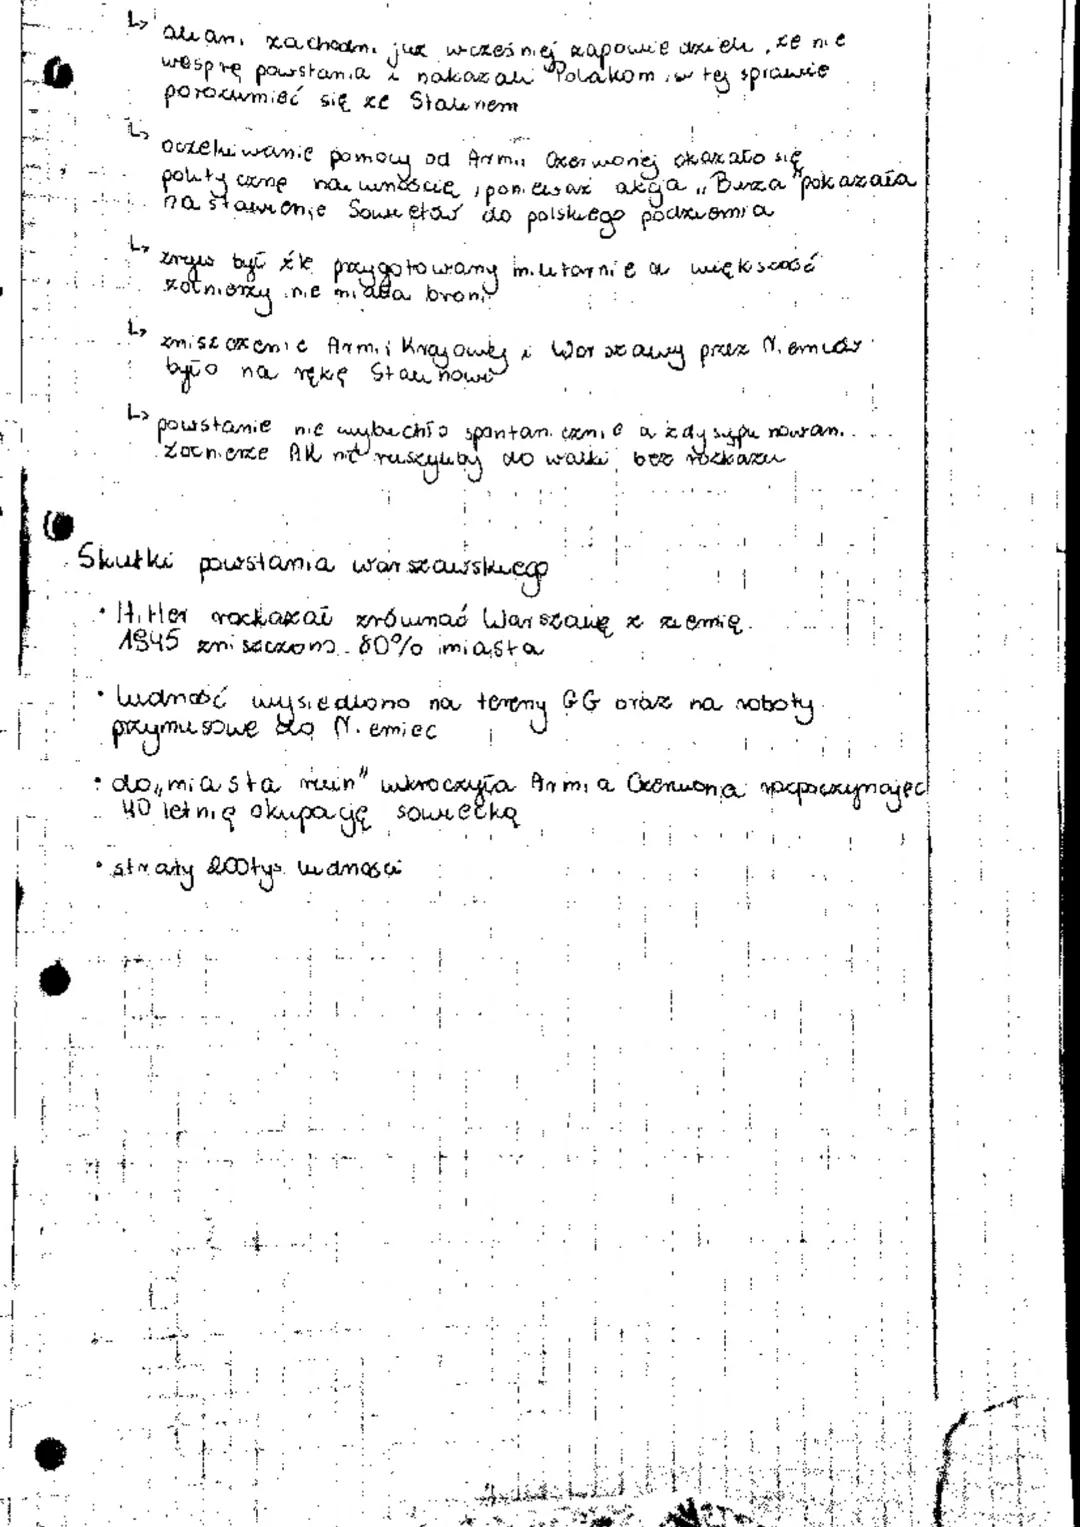 ↳ alianci zachodni już wcześniej zapowiedzieli, że nie
wesprą powstania i nakazali Polakom w tej sprawie
porozumieć się ze Stalinem
↳ oczekiwanie pomocy od Armii Czerwonej okazało się
polityczną naiwnością, ponieważ akcja „Burza" pokazała
nastawienie Sowietów do polskiego podziemia
↳ zryw był źle przygotowany militarnie a większość
żołnierzy nie miała broni
↳ zniszczenie Armii Krajowej i Warszawy przez Niemców
było na rękę Stalinowi
↳ powstanie nie wybuchło spontanicznie a zdyscyplinowani
Żołnierze AK nie ruszyliby do walki bez rozkazu
Skutki powstania warszawskiego
• Hitler rozkazał zrównać Warszawę z ziemią.
1945 zniszczono 80% miasta
• ludność wysiedlono na tereny GG oraz na roboty
przymusowe do Niemiec
• do „miasta ruin" wkroczyła Armia Czerwona rozpoczynając
40 letnią okupację sowiecką
• straty 200tys. ludności